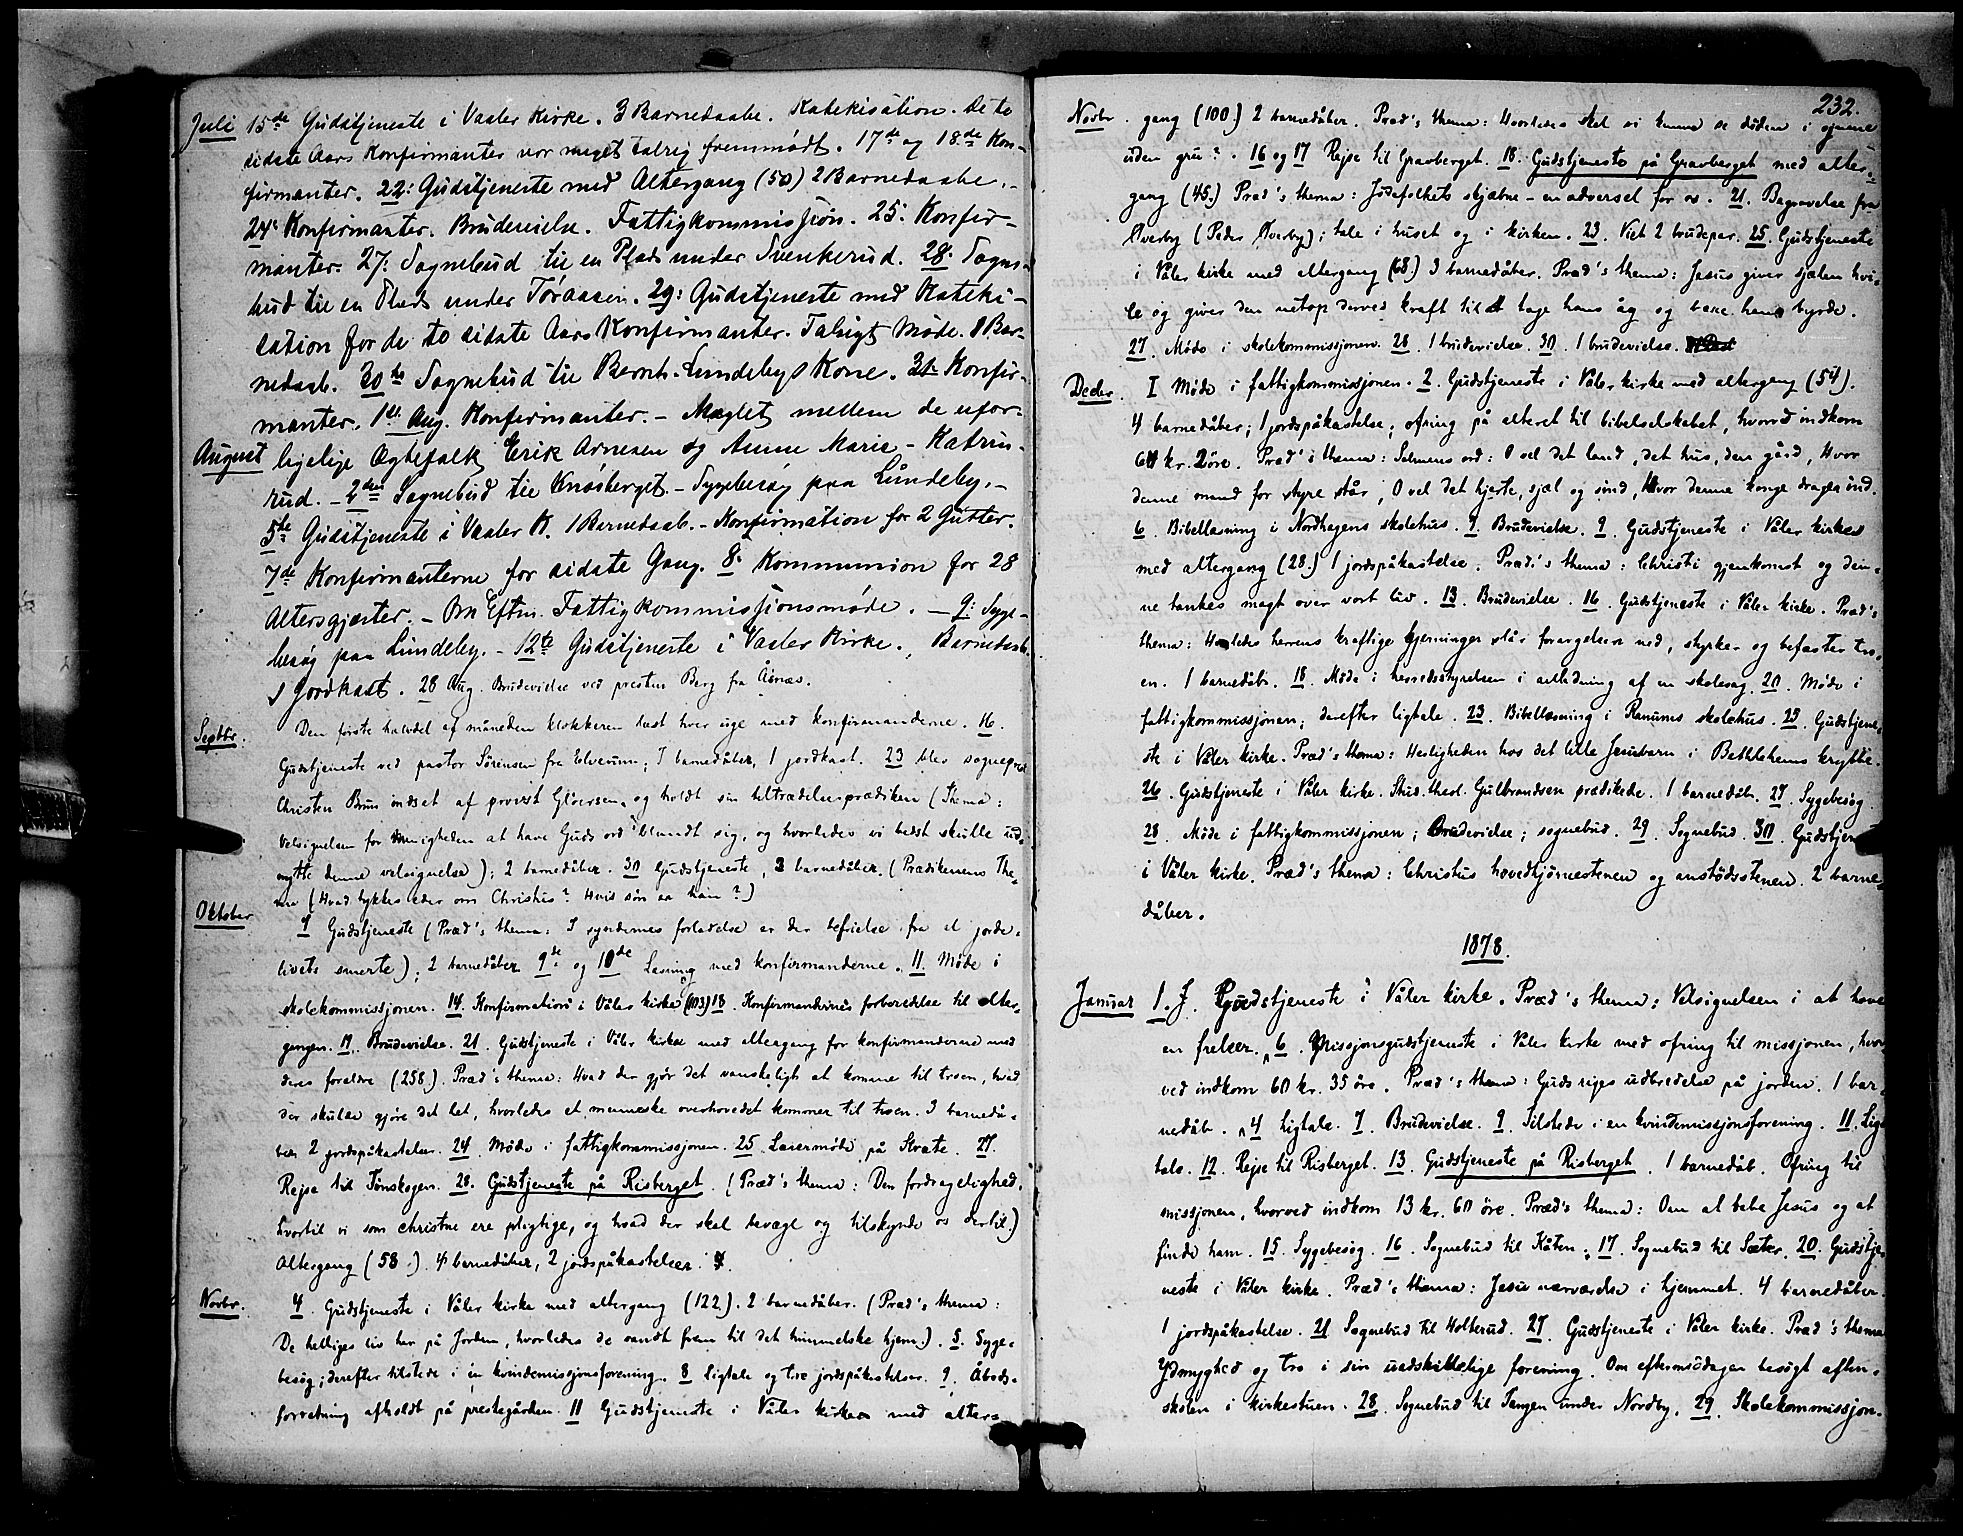 Juli 15de Gudstjeneste i Vaaler Kirke. 3 Barnedaabe. Katekisation. De to
sidste Aars Konfirmanter var meget talrig fremmødt. 17de og 18de Kon-
firmanter. 22: Gudstjeneste med Altergang (50) 2 Barnedaabe.-
24: Konfirmanter. Brudevielse. Fattigkommissjon. 25: Konfir-
manter. 27: Sognebud til en Plads under Svenkerud. 28: Sogne-
bud til en Plads under Toraasen. 29: Gudstjeneste med Kateki-
sation for de to sidste Aars Konfirmanter. Talrigt Møde. 1 Bar-
nedaab. 30te Sognebud til Bernt Lundebys Kone. 31: Konfir-
manter. 1st Aug. Konfirmanter. - Mæglet mellem de ufor-
August ligelige Ægtefolk Erik Arnesen og Anne Marie - Katrin-
rud. - 2den Sognebud til Knosberget. - Sygebesøg paa Lundeby.-
5te Gudstjeneste i Vaaler K. 1 Barnedaab. - Konfirmation for 2 Gutter.
7de Konfirmanterne for sidste Gang. 8: Kommunion for 28
Altersgjæster. - Eftm. Fattigkommissjonsmøde. - 9: Syge-
besøg paa Lundeby. - 12te Gudstjeneste i Vaaler Kirke., Barnedaab.
1 Jordkast. 28 Aug. Brudevielse ved presten Berg fra Åsnæs.
Septbr. Den første halvdel af måneden klokkeren læst hver uge med konfirmanderne. 16.
Gudstjeneste ved pastor Sørensen fra Elverum; 7 barnedåber, 1 jordkast. 23 blev sognepræst
Christen Brun indsat af provst Gløersen, og holdt sin tiltrædelsesprædiken (Thema:
Velsignelsen for menigheden at have Guds ord iblandt sig, og hvorledes vi bedst skulle ud-
nytte denne velsignelse); 2 barnedåber. 30 Gudstjeneste, 3 barnedåber. (Prædikenens The-
ma (Hvad tykkes eder om Christus? Hvis søn er han?)
Oktober 7 Gudstjeneste (Præd's thema: I syndernes forladelse er der befrielse fra et jorde-
livets smerte); 2 barnedåber 9de og 10de Læsning med konfirmanderne. 11. Møde i
skolekommissjonen. 14. Konfirmation i Våler kirke (113) 18. Konfirmandernes forberedelse til alter-
gangen. 19. Brudevielse. 21. Gudstjeneste i Våler kirke med altergang for konfirmanderne med
deres forældre (258). Præd's thema: Hvad der gjør det vanskeligt at komme til troen, hvad
der skulde gjøre det let, hvorledes et menneske overhovedet kommer til troen. 3 barnedå-
ber 2 jordspåkastelser. 24. Møde i fattigkommissjonen. 25. Lærermøde på Kvate. 27.
Rejse til Tørskogen. 28. Gudstjeneste på Risberget. (Præd's thema: Den fordragelighed,
hvortil vi som christne ere pligtige, og hvad der skal bevæge og tilskynde os dertil.)
Altergang (58.) 4 barnedåber, 2 jordspåkastelser.
Novbr. 4. Gudstjeneste i Våler kirke med altergang (122). 2 barnedåber. (Præd's thema:
De helliges liv her på Jorden, hvorledes de vandt frem til det himmelske hjem.). 5. Syge-
besøg; derefter tilstede i en kvindemissjonsforening. 8 ligtale og tre jordspåkastelser. 9. Åbods-
forretning afholdt på prestegården. 11 Gudstjeneste i Våler kirke med alter-
232.
Novbr. gang (100.) 2 barnedåber. Præd's thema: Hvorledes skal vi kunne se døden i øjnene
uden gru?. 16 og 17 Rejse til Gravberget. 18. Gudstjeneste på Gravberget med alter-
gang (45.) Præd's thema: Jødefolkets skjæbne - en advarsel for os. 21. Begravelse fra
Øverby (Peder Øverby); tale i huset og i kirken. 23. Viet 2 brudepar. 25. Gudstjeneste
i Våler kirke med altergang (68.) 3 barnedåber. Præd's thema: Jesus giver sjælen hvi-
le og giver den netop derved kraft til at tage hans åg og bære hans byrde.
27. Møde i skolekommissjonen. 28. 1 brudevielse. 30. 1 brudevielse.
Decbr. 1 Møde i fattigkommissjonen. 2. Gudstjeneste i Våler kirke med altergang (54).
4 barnedåber; 1 jordspåkastelse; ofring på alteret til bibelselskabet, hvorved indkom
6 kr. 2 øre. Præd's thema: Salmens ord: O vel det land, det hus, den gård, Hvor
denne mand for styre står, O vel det hjerte, sjæl og sind, Hvor denne konge drager ind.
6. Bibellæsning i Nordhagens skolehus. 7. Brudevielse. 9. Gudstjeneste i Våler kirke
med altergang (28.) 1 jordspåkastelse. Præd.'s thema: Christi gjenkomst og den-
ne tankes magt over vort liv. 13. Brudevielse. 16. Gudstjeneste i Våler kirke. Præd's
thema: Hvorledes herrens kraftige gjerninger slår forargelsen ned, styrker og befæster tro-
en. 1 barnedåb. 18. Møde i herredsstyrelsen i anledning af en skolesag. 20. Møde i
fattigkommissjonen; derefter ligtale. 23. Bibellæsning i Ranums skolehus. 25. Gudstjene-
ste i Våler kirke. Præd's thema: Herligheden hos det lille Jesusbarn i Bethlehems krybbe.
26. Gudstjeneste i Våler kirke. Stud. theol. Gulbrandsen prædikede. 1 barnedåb. 27. Sygebesøg.
28. Møde i fattigkommissjonen; Brudevielse; sognebud. 29. Sognebud. 30. Gudstjen
i Våler kirke. Præd's thema: Christus hovedhjørnestenen og anstødsstenen. 2 barne-
dåber.
1878.
Januar 1. Gudstjeneste i Våler kirke. Præd's thema: Velsignelsen i at have
en frelser. 6. Missjonsgudstjeneste i Våler kirke med ofring til missjonen, hvor
ved indkom 60 kr. 35 øre. Præd's thema: Guds riges udbredelse på jorden. 1 bar-
nedåb. 4 ligtale. 7. Brudevielse. 9. Tilstede i en kvindemissjonsforening. 11. Lig-
tale. 12. Rejse til Risberget. 13. Gudstjeneste på Risberget. 1 barnedåb. Ofring til
missjonen, hvorved indkom 13 kr. 60 øre. Præd's thema: Om at tabe Jesus og at
finde ham. 15. Sygebesøg. 16. Sognebud til Kåten. 17. Sognebud til Sæter. 20. Gudstje-
neste i Våler kirke. Præd's thema: Jesu nærværelse i hjemmet. 4 barnedåber.
1 jordspåkastelse. 21 Sognebud til Holterud. 27. Gudstjeneste i Våler kirke. Præd's thema
Ydmyghed og tro i sin uadskillelige forening. Om eftermiddagen besøgt aften-
skolen i kirkestuen. 28. Sognebud til Tangen under Nordby. 29. Skolekommissjon-